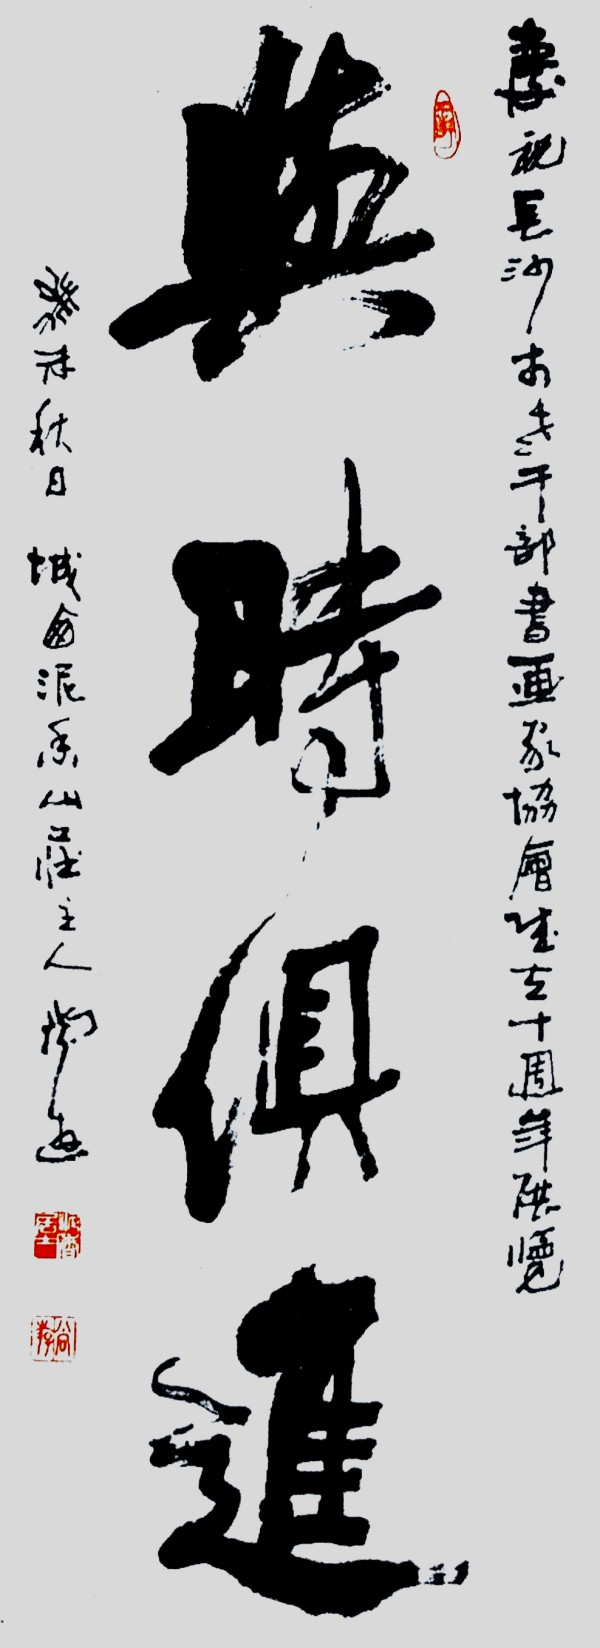 慶祝長沙市老干部書画家協會成立十周年展覽
與時俱進
癸未秋日 城南泥香山莊主人